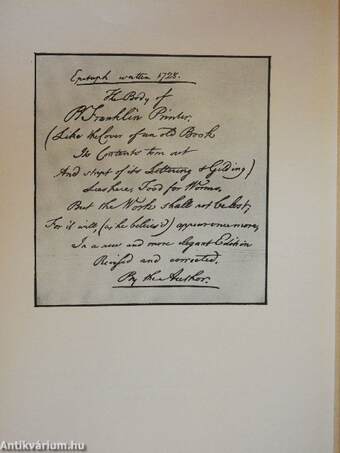 Epitaph written 1728.
The Body of
B Franklin Printer,
(Like the Cover of an old Book
Its Contents torn out
And stript of its Lettering & Gilding)
Lies here, Food for Worms.
But the Work shall not be lost;
For it will, (as he believ'd) appear once more,
In a new and more elegant Edition
Revised and corrected,
By the Author.
Antikvárium.hu